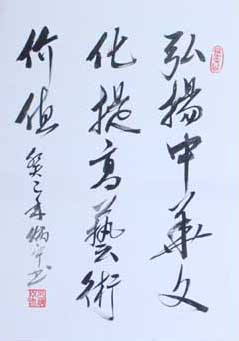 弘揚中華文
化提高藝術
价值
癸巳年炳宇书